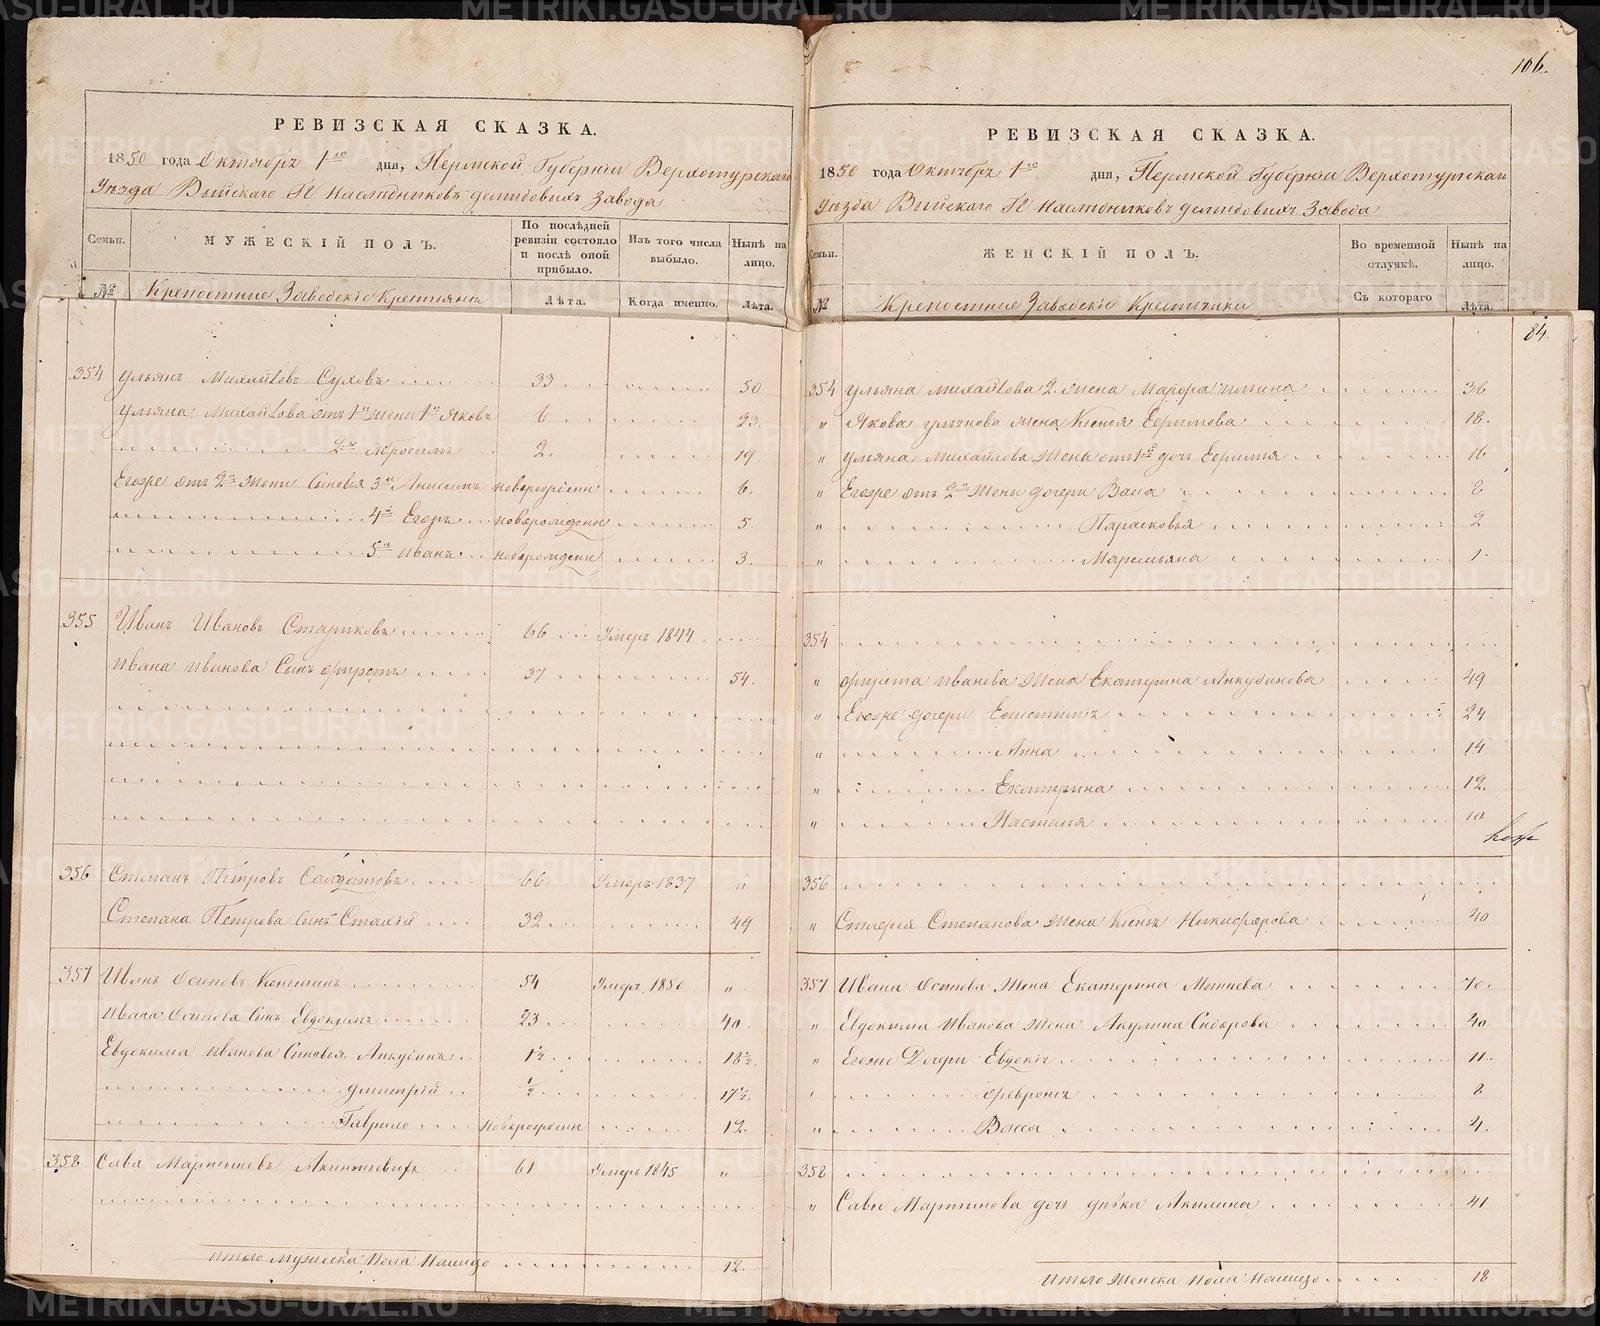 106.
РЕВИЗСКАЯ СКАЗКА.
1850 года Октября 1го дня, Пермской Губерніи Верхотурскаго
Уѣзда Выйскаго Гг наслѣдниковъ демидовыхъ Завода
Семьи.
МУЖЕСКІЙ ПОЛЪ.
По послѣдней ревизіи состояло и послѣ оной прибыло.
Изъ того числа выбыло.
Нынѣ на лицо.
№
Крепостные Заводскіе Крестьяне
Лѣта.
Когда именно.
Лѣта.
354 Ульянъ Михайловъ Суховъ 33 50
Ульяна Михайлова отъ 1й жены 1й Яковъ 6 23.
2й Абросимъ 2. 19.
Егоже отъ 2й жены Сыновья 3й Анисимъ новорожденн 6.
4й Егоръ новорожденн 5.
5й Иванъ новорожденн 3.
355 Иванъ Ивановъ Стариковъ 66 Умеръ 1844
Ивана Иванова Сынъ 37 54.
356 Степанъ Петровъ Салдатовъ 66. Умеръ 1837 "
Степана Петрова сынъ 32 49
357 Иванъ Осиповъ 54 Умеръ 1850 "
Ивана Осипова Сынъ Евдокимъ 23 40.
Евдокима Иванова Сыновья 1½ 18½.
Дмитрій ½ 17½.
Гаврило Новорожденн 12.
358. Сава Мартыновъ 61 Умеръ 1845 "
Итого мужеска Пола Налицо 12.
РЕВИЗСКАЯ СКАЗКА.
1850 года Октября 1го дня, Пермской Губерніи Верхотурскаго
Уѣзда Выйскаго Гг наслѣдниковъ демидовыхъ Завода
Семьи.
ЖЕНСКІЙ ПОЛЪ.
Во временной отлучкѣ.
Нынѣ на лицо.
№
Крепостные Заводскіе Крестьянки
Съ котораго
Лѣта.
84.
354 Ульяна Михайлова 2. жена Марфа Ильина 36
" Якова Ульянова жена Ксенья Ефимова 18.
" Ульяна Михайлова жены отъ 1й дочь 16
" Егоже отъ 2й жены дочери Васа 8
" Парасковья 2
" Маремьяна 1.
354
" Иванова жена Екатерина 49
" Егоже дочери 24
" Анна 14
" Екатерина 12.
" Настасья 10
356
" Степанова жена Ксенья Никифорова 40
357 Ивана Осипова жена Екатерина 70.
" Евдокима Иванова жена Акулина 40.
" Егоже Дочери Евдокія 11.
" Февронья 8
" Васса 4.
358
" Савы Мартынова дочь дѣвка Акилина 41
Итого Женска Пола Налицо 18
METRIKI.GASO-URAL.RU